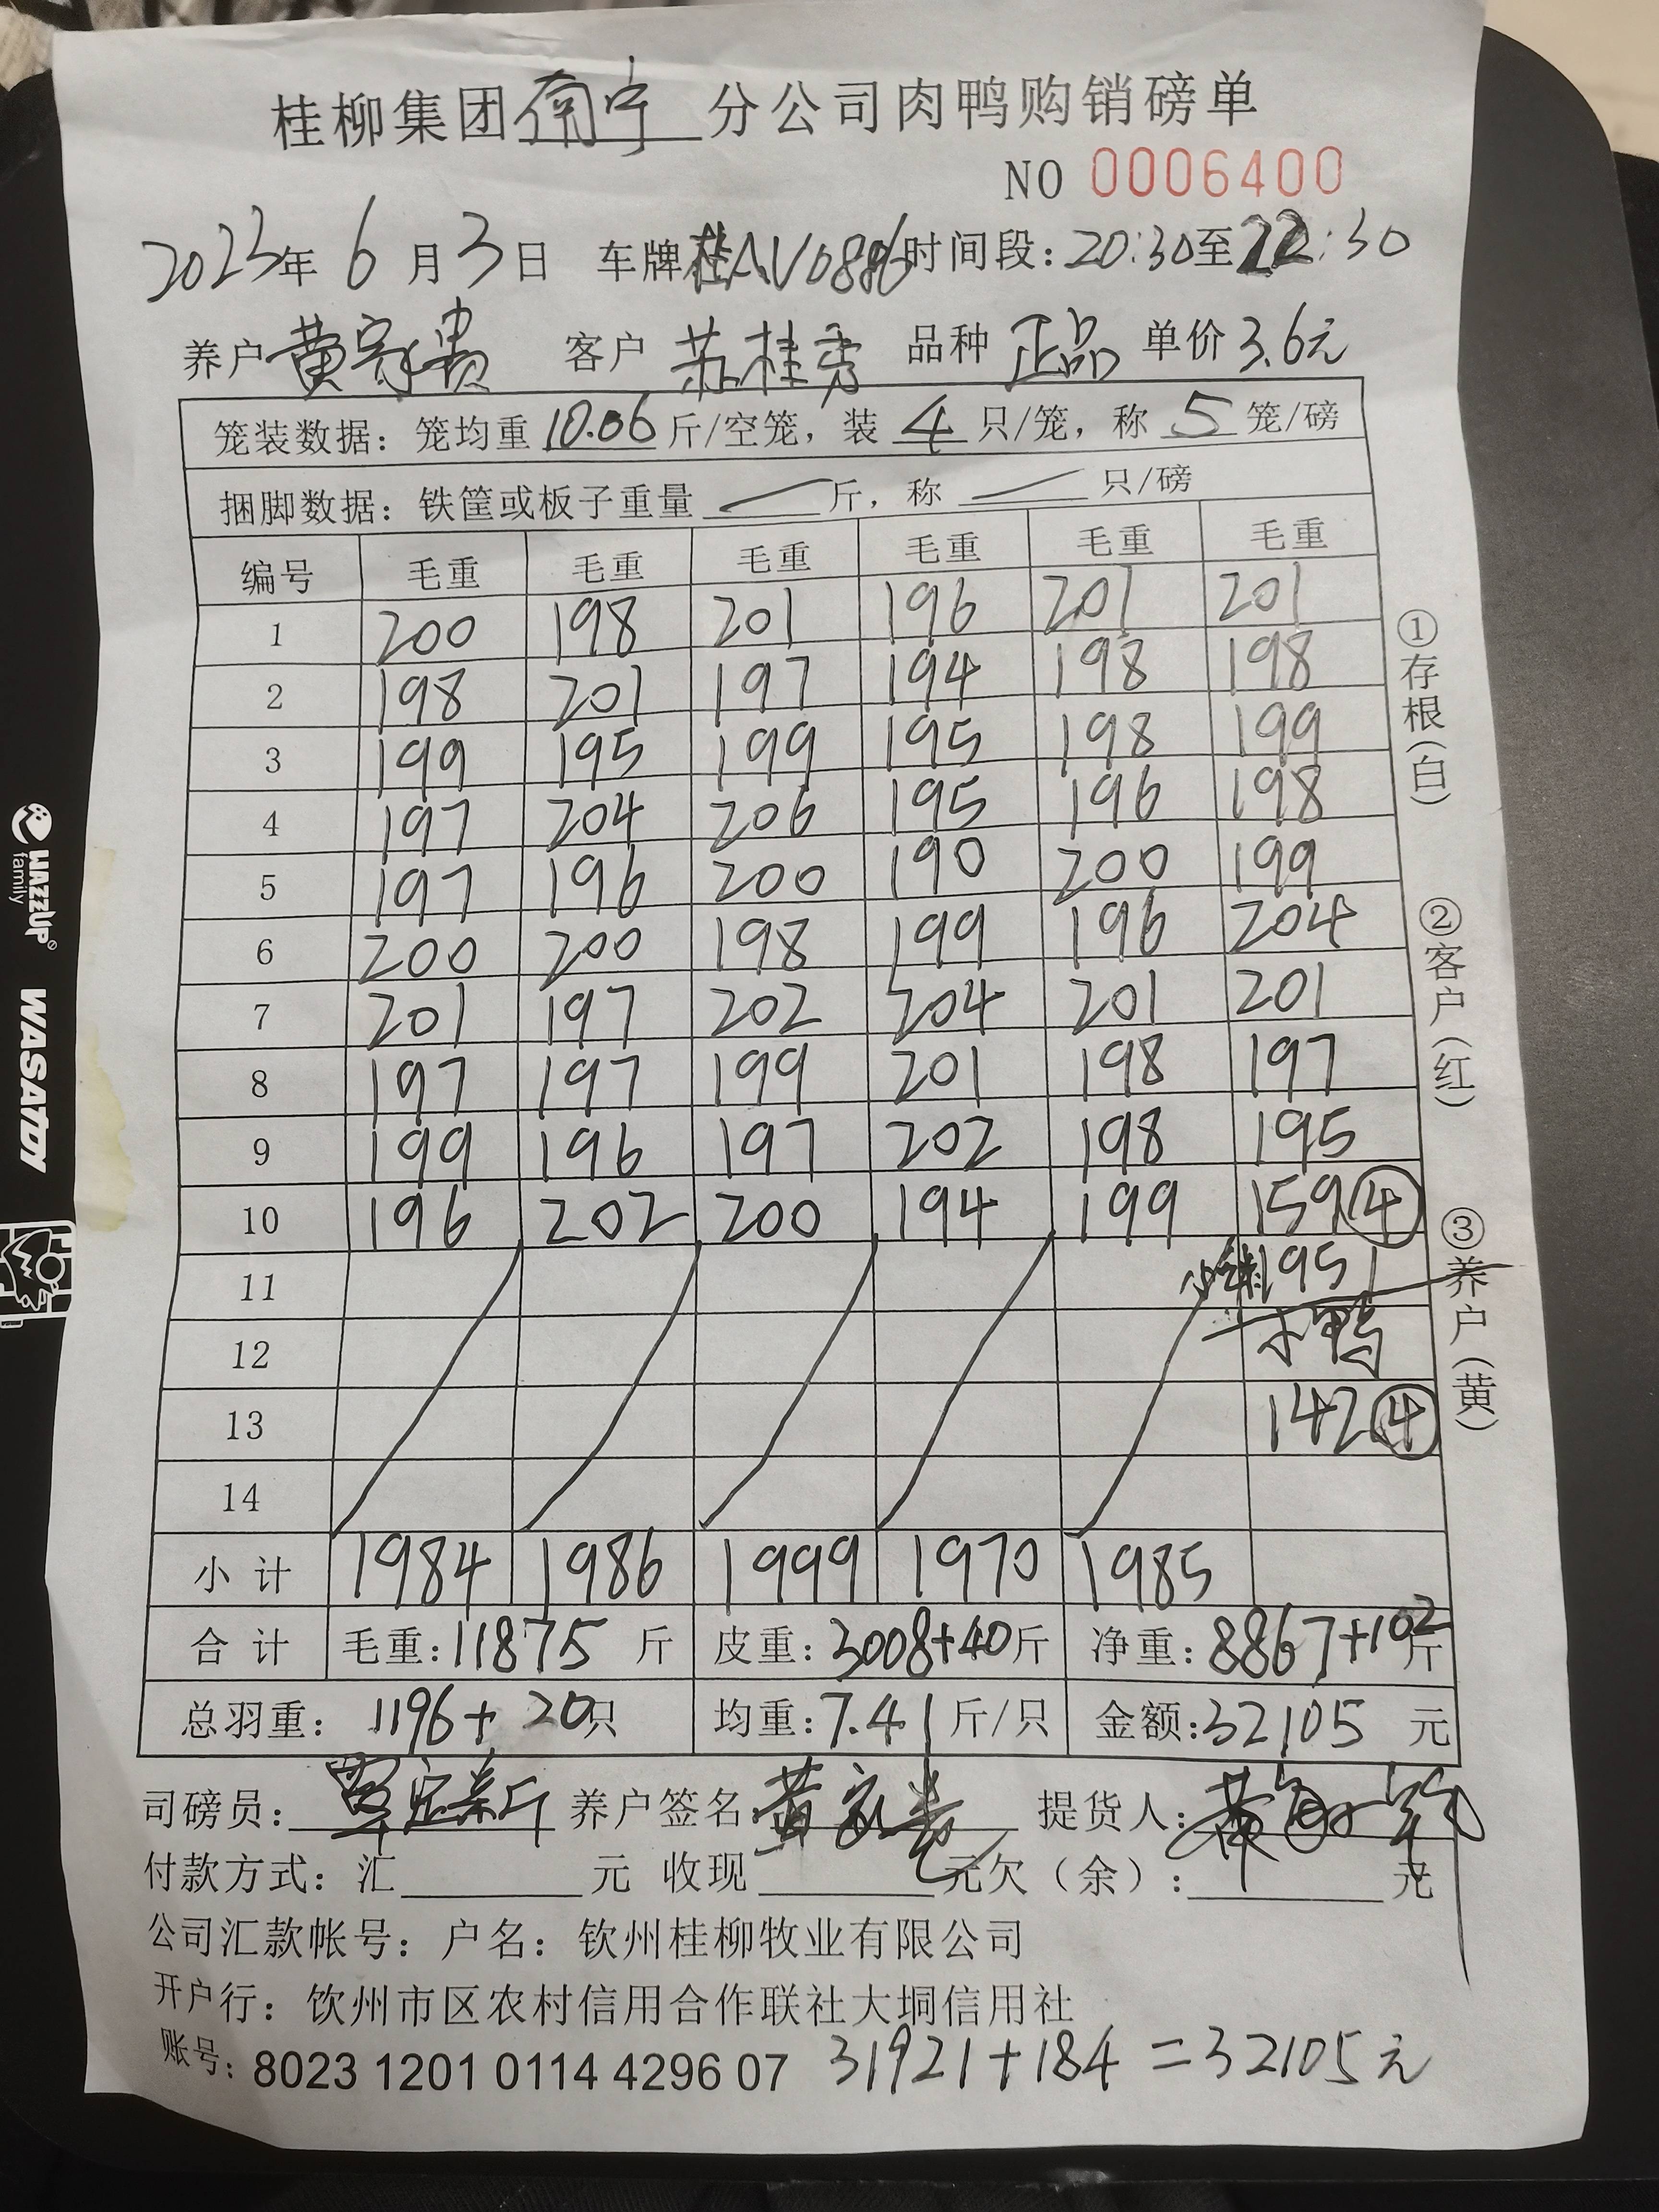 桂柳集团南宁分公司肉鸭购销磅单
NO 0006400
2023年 6 月 3 日 车牌桂AV0886时间段：20:30至22:30
养户 黄家贵 客户 苏桂秀 品种 正品 单价 3.6元
笼装数据：笼均重 10.06 斤/空笼，装 4 只/笼，称 5 笼/磅
捆脚数据：铁筐或板子重量 — 斤，称 — 只/磅
编号 毛重 毛重 毛重 毛重 毛重 毛重
1 200 198 201 196 201 201
2 198 201 197 194 198 198
3 199 195 199 195 198 199
4 197 204 206 195 196 198
5 197 196 200 190 200 199
6 200 200 198 199 196 204
7 201 197 202 204 201 201
8 197 197 199 201 198 197
9 199 196 197 202 198 195
10 196 202 200 194 199 159④
11 1951
12 小鸭
13 142④
14
小 计 1984 1986 1999 1970 1985
合 计 毛重：11875 斤 皮重：3008+40斤 净重：8867+102斤
总羽重： 1196+ 20只 均重：7.41斤/只 金额：32105 元
司磅员： 养户签名 黄家贵 提货人：
付款方式：汇 元 收现 元欠（余）： 元
公司汇款帐号：户名：钦州桂柳牧业有限公司
开户行：钦州市区农村信用合作联社大垌信用社
账号：8023 1201 0114 4296 07 31921+184=32105元
①存根（白）
②客户（红）
③养户（黄）
HAZZUP
family
WASATCH